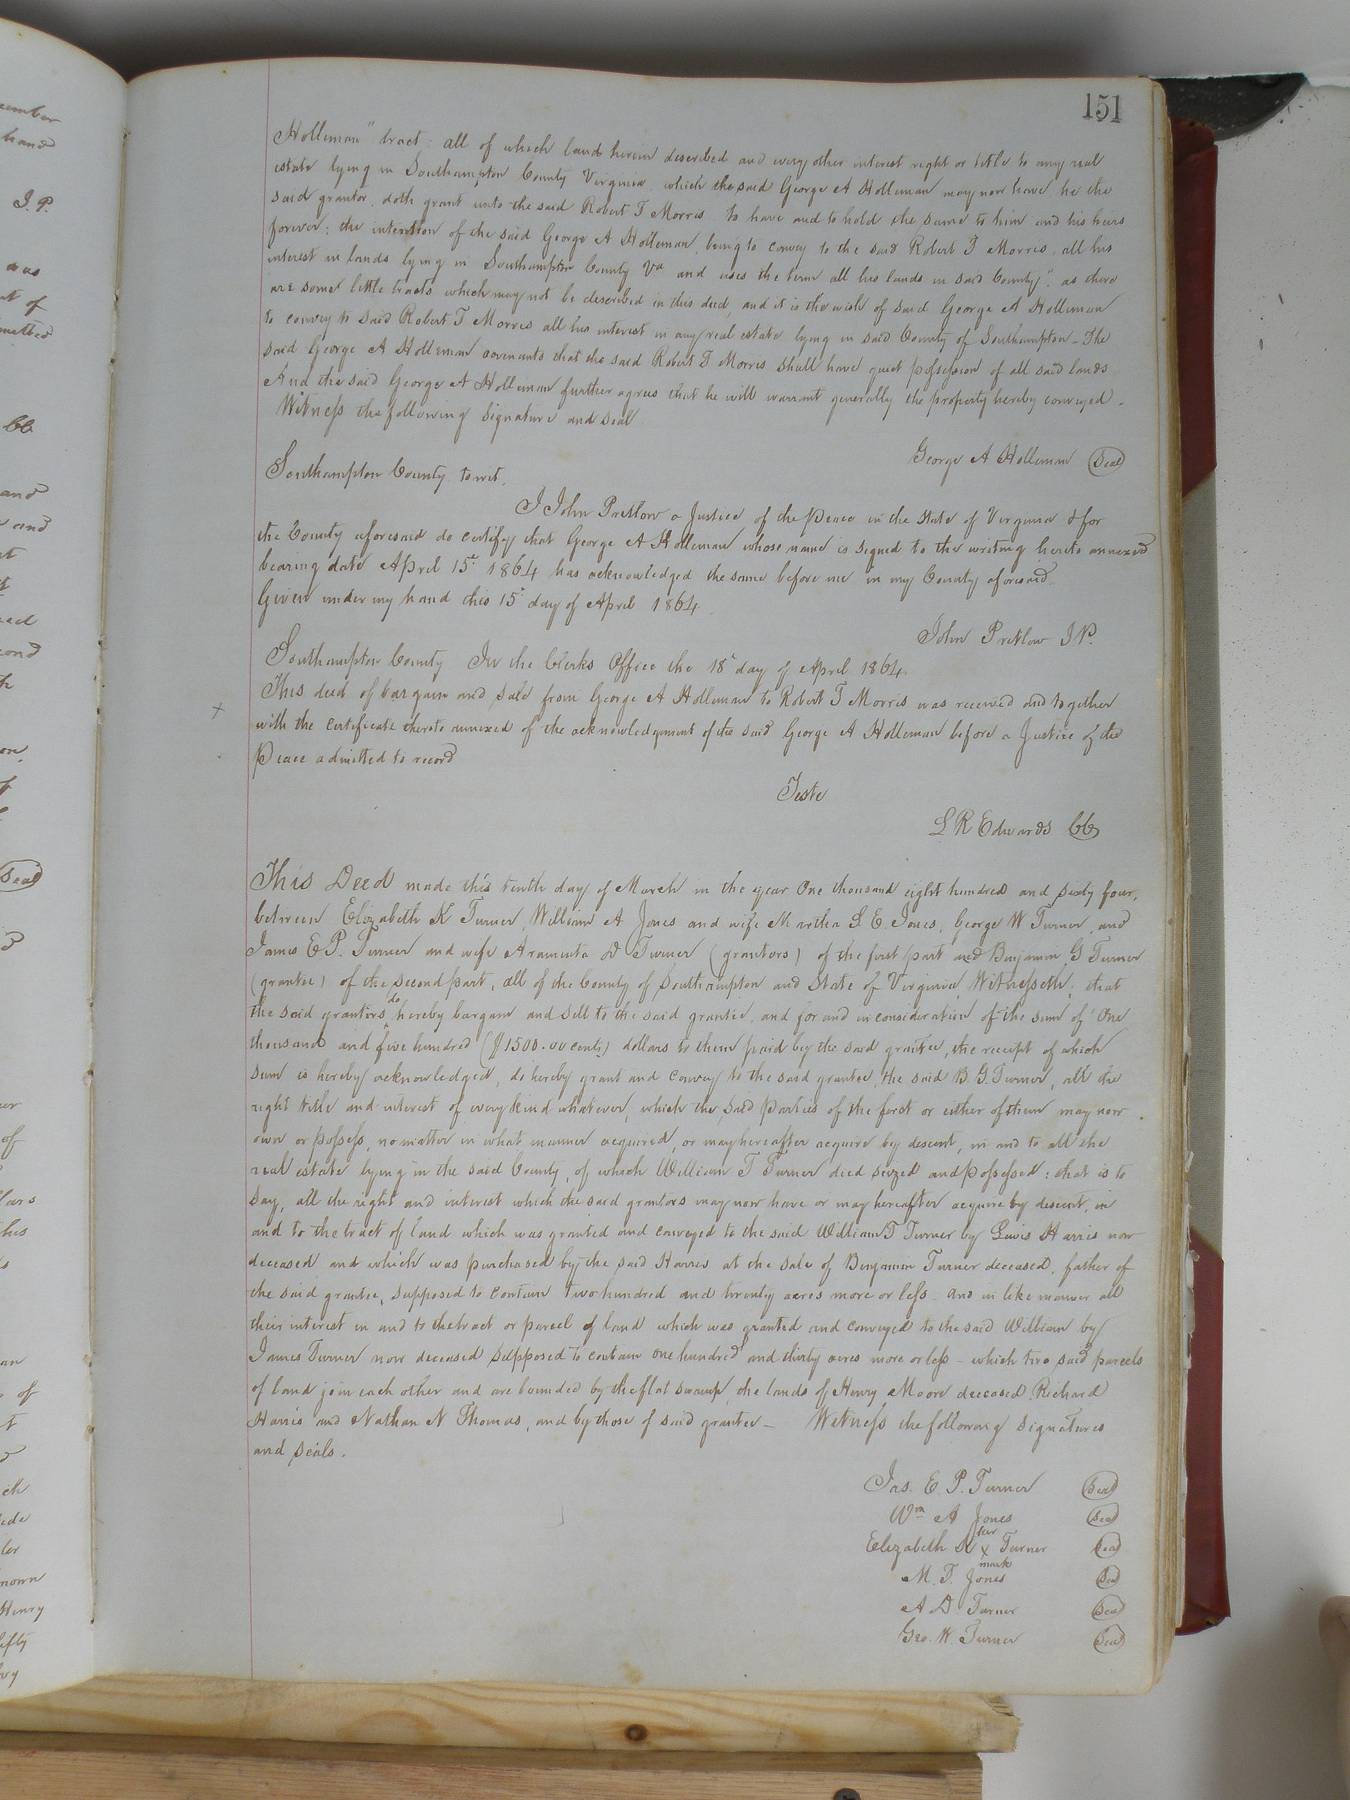 151
Holleman" tract; all of which lands herein described and every other interest right or title to any real
estate lying in Southampton County Virginia, which the said George A Holleman may now have, he the
said grantor, doth grant unto the said Robert T Morris. To have and to hold the same to him and his heirs
forever; the intention of the said George A Holleman, being to convey to the said Robert T Morris, all his
interest in lands lying in Southampton County Va and uses the term all his lands in said County", as there
are some little tracts which may not be described in this deed, and it is the wish of said George A Holleman
to convey to said Robert T Morris all his interest in any real estate lying in said County of Southampton - The
said George A Holleman covenants that the said Robert T Morris shall have quiet possession of all said lands
And the said George A Holleman further agrees that he will warrant generally the property hereby conveyed -
Witness the following signature and seal
George A Holleman Seal
Southampton County towit,
I John Pretlow a Justice of the Peace in the State of Virginia & for
the County aforesaid do certify that George A Holleman whose name is signed to the writing hereto annexed
bearing date April 15 1864 has acknowledged the same before me in my County aforesaid.
Given under my hand this 15 day of April 1864
John Pretlow J.P.
Southampton County In the Clerks Office the 18 day of April 1864
This deed of bargain and sale from George A Holleman to Robert T Morris was received and together
x
with the certificate thereto annexed of the acknowledgement of the said George A Holleman before a Justice of the
Peace admitted to record
Teste
L R Edwards CC
This Deed made this tenth day of March in the year One thousand eight hundred and sixty four,
between Elizabeth K Turner, William A Jones and wife Martha S. E. Jones, George W Turner, and
James E P. Turner and wife Araminta D Turner (grantors) of the first part and Benjamin G Turner
(grantee) of the second part, all of the County of Southampton and State of Virginia, Witnesseth; that
the said grantors do hereby bargain and sell to the said grantee, and for and in consideration of the sum of One
thousand and five hundred ($1500.00 cents) dollars to them paid by the said grantee, the receipt of which
sum is hereby acknowledged, do hereby grant and convey to the said grantee, the said B. G. Turner, all the
right title and interest of every kind whatever, which the said parties of the first or either of them may now
own or possess, no matter in what manner acquired, or may hereafter acquire by descent, in and to all the
real estate lying in the said County, of which William T Turner died seized and possessed: that is to
say, all the right and interest which the said grantors may now have or may hereafter acquire by descent, in
and to the tract of land which was granted and conveyed to the said William T Turner by Lewis Harris now
deceased and which was purchased by the said Harris, at the sale of Benjamin Turner deceased, father of
the said grantee, supposed to contain two hundred and twenty acres more or less - and in like manner all
their interest in and to the tract or parcel of land which was granted and conveyed to the said William by
James Turner now deceased supposed to contain one hundred and thirty acres more or less - which two said parcels
of land join each other and are bounded by the flat swamp, the lands of Henry Moore deceased, Richard
Harris and Nathan N Thomas, and by those of said grantee - Witness the following signatures
and seals.
Jas. E. P. Turner Seal
Wm A Jones Seal
her
Elizabeth K x Turner Seal
mark
M. T. Jones Seal
A D. Turner Seal
Geo. W. Turner Seal